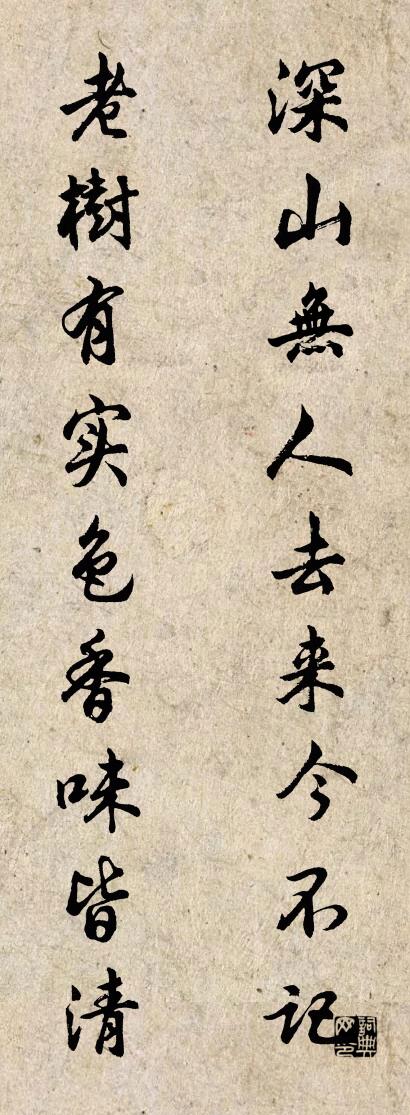 深山無人去来今不记
老樹有实色香味皆清